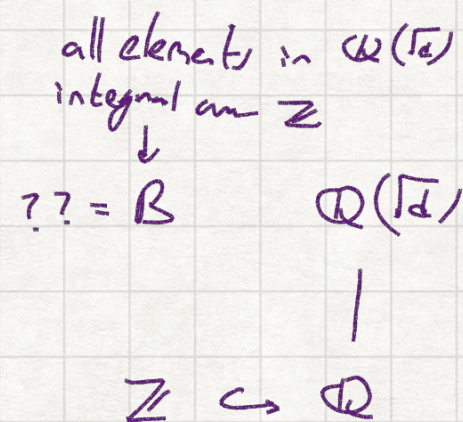 all elements in ℚ(√d)
integral over ℤ
↓
?? = B ℚ(√d)
|
ℤ ↪ ℚ